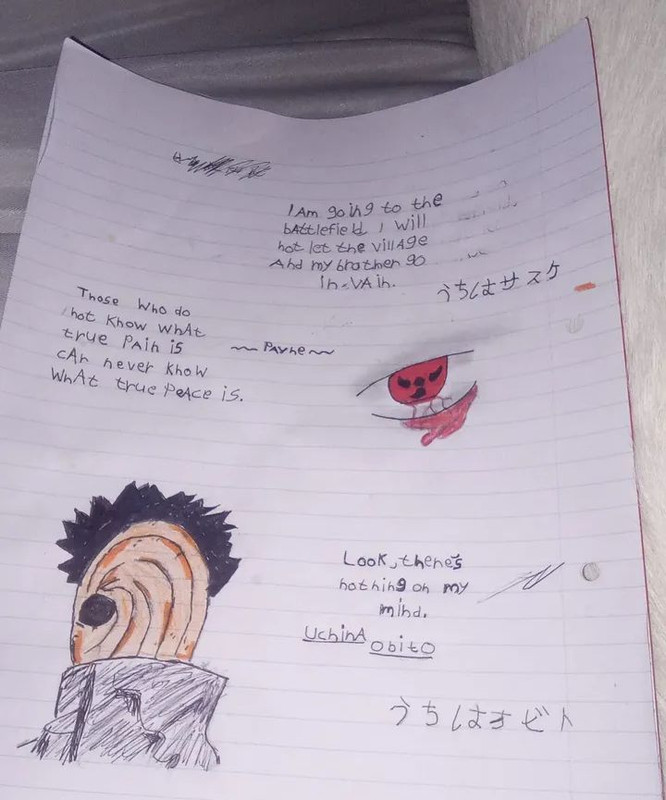 I Am going to the
bAttlefield I will
not let the villAge
And my brother go
in-VAin.
うちはサスケ
Those Who do
not Know whAt
true PAin is
cAn never Know
WhAt true PeAce is.
~~ PAyne ~~
Look, there's
nothing on my
mind.
UchihA Obito
うちはオビト